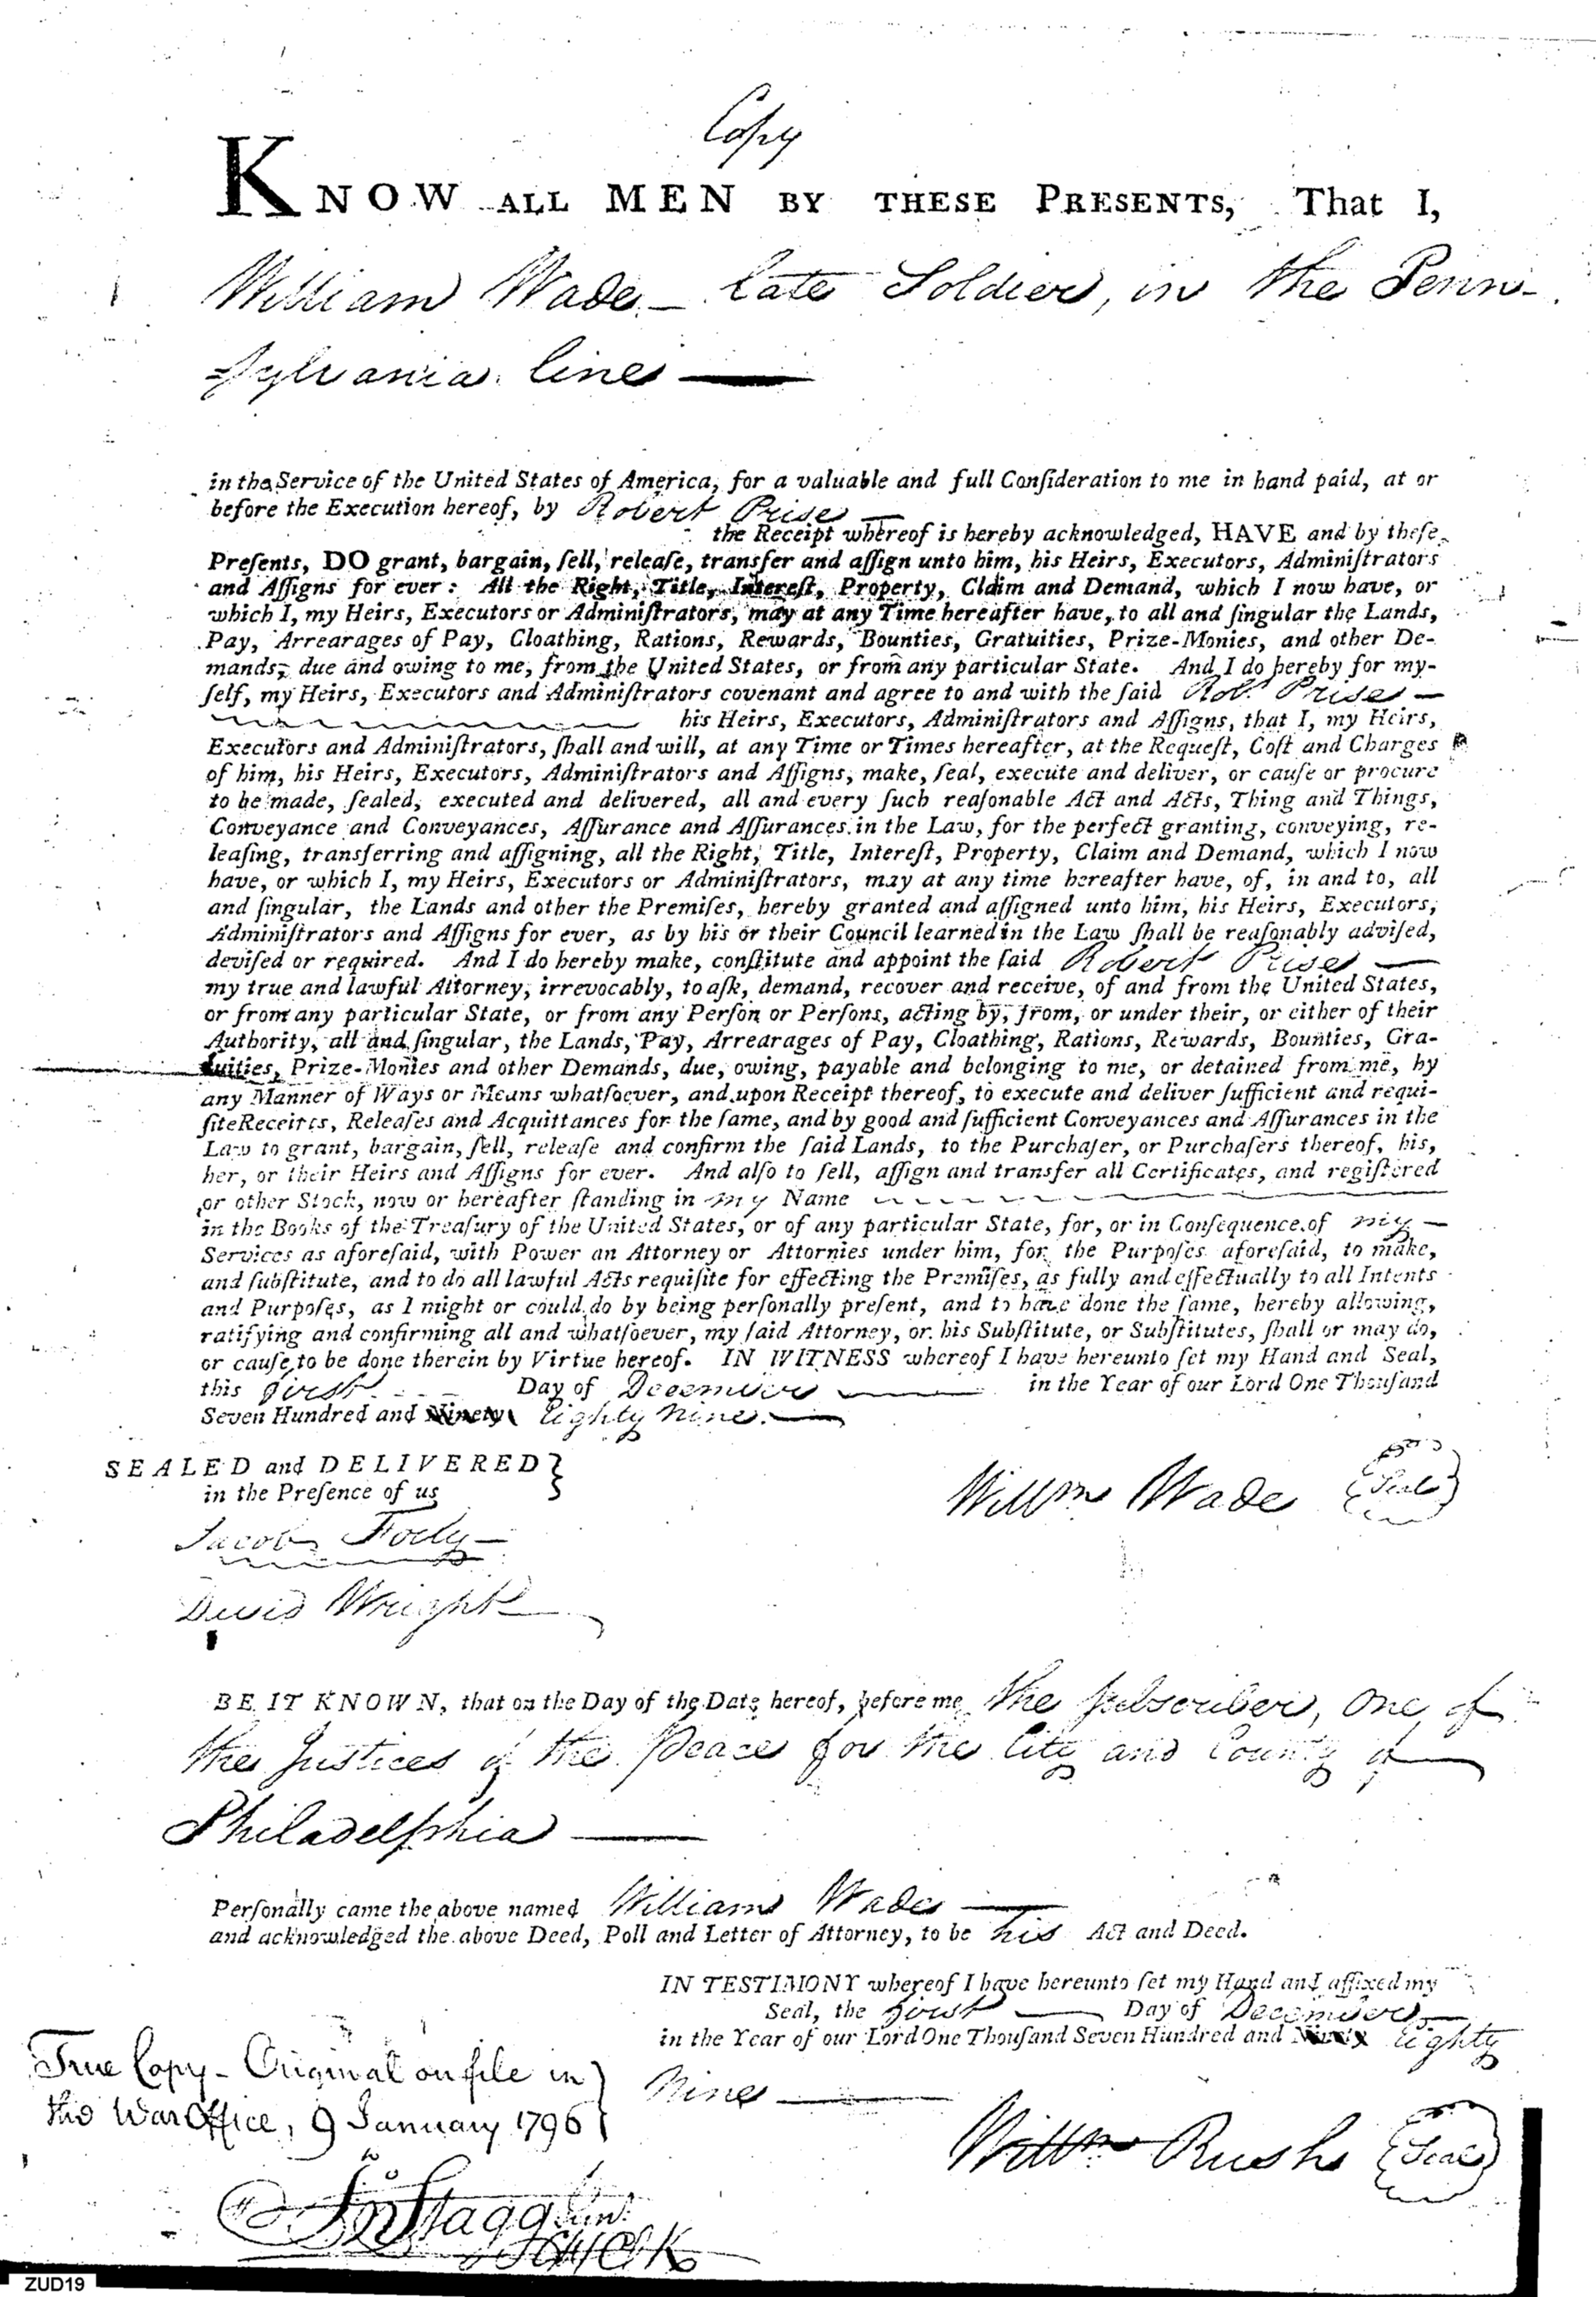 Copy
KNOW ALL MEN BY THESE PRESENTS, That I,
William Wade – late Soldier, in the Penn-
=sylvania line —
in the Service of the United States of America, for a valuable and full Conſideration to me in hand paid, at or
before the Execution hereof, by Robert Prise —
the Receipt whereof is hereby acknowledged, HAVE and by theſe
Preſents, DO grant, bargain, ſell, releaſe, transfer and aſſign unto him, his Heirs, Executors, Adminiſtrators
and Aſſigns for ever: All the Right, Title, Intereſt, Property, Claim and Demand, which I now have, or
which I, my Heirs, Executors or Adminiſtrators, may at any Time hereafter have, to all and ſingular the Lands,
Pay, Arrearages of Pay, Cloathing, Rations, Rewards, Bounties, Gratuities, Prize-Monies, and other De-
mands, due and owing to me, from the United States, or from any particular State. And I do hereby for my-
ſelf, my Heirs, Executors and Adminiſtrators covenant and agree to and with the ſaid Rob.t Prise —
his Heirs, Executors, Adminiſtrators and Aſſigns, that I, my Heirs,
Executors and Adminiſtrators, ſhall and will, at any Time or Times hereafter, at the Requeſt, Coſt and Charges
of him, his Heirs, Executors, Adminiſtrators and Aſſigns, make, ſeal, execute and deliver, or cauſe or procure
to be made, ſealed, executed and delivered, all and every ſuch reaſonable Act and Acts, Thing and Things,
Conveyance and Conveyances, Aſſurance and Aſſurances in the Law, for the perfect granting, conveying, re-
leaſing, transferring and aſſigning, all the Right, Title, Intereſt, Property, Claim and Demand, which I now
have, or which I, my Heirs, Executors or Adminiſtrators, may at any time hereafter have, of, in and to, all
and ſingular, the Lands and other the Premiſes, hereby granted and aſſigned unto him, his Heirs, Executors,
Adminiſtrators and Aſſigns for ever, as by his or their Council learned in the Law ſhall be reaſonably adviſed,
deviſed or required. And I do hereby make, conſtitute and appoint the ſaid Robert Prise —
my true and lawful Attorney, irrevocably, to aſk, demand, recover and receive, of and from the United States,
or from any particular State, or from any Perſon or Perſons, acting by, from, or under their, or either of their
Authority, all and ſingular, the Lands, Pay, Arrearages of Pay, Cloathing, Rations, Rewards, Bounties, Gra-
tuities, Prize-Monies and other Demands, due, owing, payable and belonging to me, or detained from me, by
any Manner of Ways or Means whatſoever, and upon Receipt thereof, to execute and deliver ſufficient and requi-
ſite Receipts, Releaſes and Acquittances for the ſame, and by good and ſufficient Conveyances and Aſſurances in the
Law to grant, bargain, ſell, releaſe and confirm the ſaid Lands, to the Purchaſer, or Purchaſers thereof, his,
her, or their Heirs and Aſſigns for ever. And alſo to ſell, aſſign and transfer all Certificates, and regiſtered
or other Stock, now or hereafter ſtanding in my Name
in the Books of the Treaſury of the United States, or of any particular State, for, or in Conſequence of my —
Services as aforeſaid, with Power an Attorney or Attornies under him, for the Purpoſes aforeſaid, to make,
and ſubſtitute, and to do all lawful Acts requiſite for effecting the Premiſes, as fully and effectually to all Intents
and Purpoſes, as I might or could do by being perſonally preſent, and to have done the ſame, hereby allowing,
ratifying and confirming all and whatſoever, my ſaid Attorney, or his Subſtitute, or Subſtitutes, ſhall or may do,
or cauſe to be done therein by Virtue hereof. IN WITNESS whereof I have hereunto ſet my Hand and Seal,
this first Day of December — in the Year of our Lord One Thouſand
Seven Hundred and Ninety Eighty Nine. —
SEALED and DELIVERED }
in the Preſence of us
Willm Wade (Seal)
Jacob Fody —
David Wright
BE IT KNOWN, that on the Day of the Date hereof, before me the subscriber, One of
the Justices of the Peace for the City and County of
Philadelphia —
Perſonally came the above named William Wade —
and acknowledged the above Deed, Poll and Letter of Attorney, to be his Act and Deed.
IN TESTIMONY whereof I have hereunto ſet my Hand and affixed my
Seal, the first — Day of December —
in the Year of our Lord One Thouſand Seven Hundred and Ninety Eighty
Nine —
Willm Rush (Seal)
True Copy – Original on file in
the War Office, 9 January 1796
Jno Stagg Junr.
Ch Clk
ZUD19